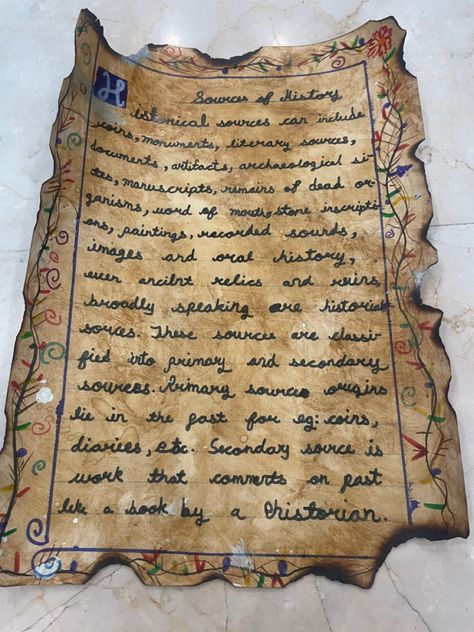 Sources of History
Historical sources can include
coins, monuments, literary sources,
documents, artifacts, archaeological si-
tes, manuscripts, remains of dead or-
ganisms, word of mouth, stone inscripti-
ons, paintings, recorded sounds,
images and oral history,
even ancient relics and ruins
broadly speaking are historical
sources. These sources are classi-
fied into primary and secondary
sources. Primary sources origins
lie in the past for eg: coins,
diaries, etc. Secondary source is
work that comments on past
like a book by a historian.